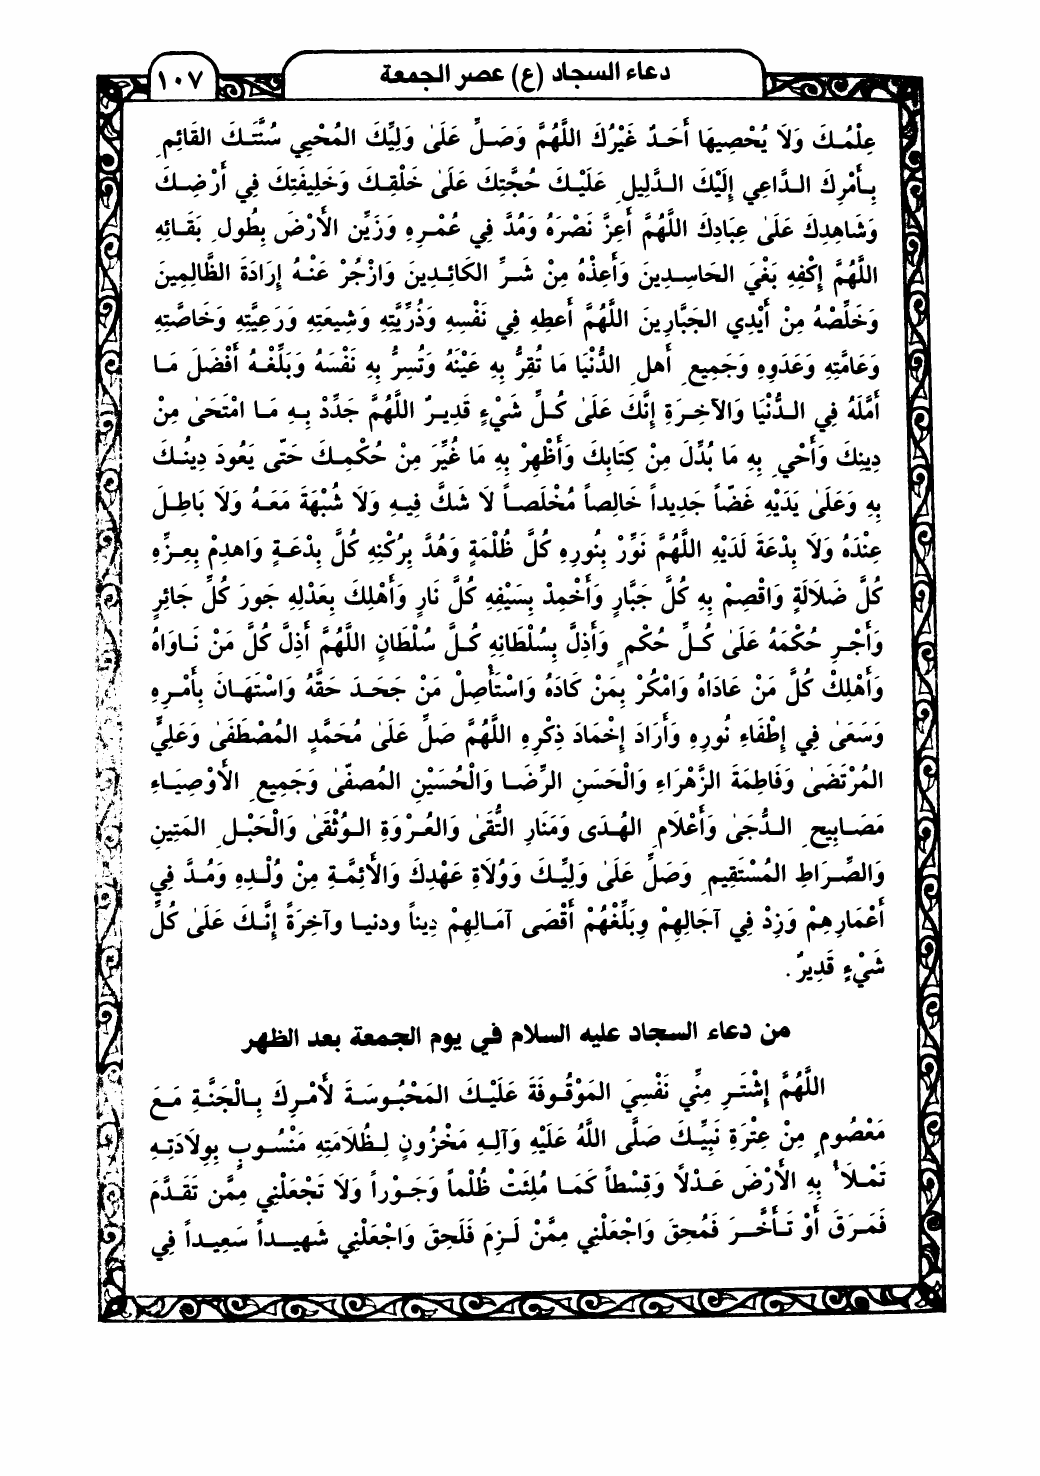 دعاء السجاد (ع) عصر الجمعة
١٠٧
عِلْمُكَ وَلَا يُحْصِيهَا أَحَدٌ غَيْرُكَ اللَّهُمَّ وَصَلِّ عَلَىٰ وَلِيِّكَ المُحْيِي سُنَّتَكَ القَائِمِ
بِأَمْرِكَ الدَّاعِي إِلَيْكَ الدَّلِيلِ عَلَيْكَ حُجَّتِكَ عَلَىٰ خَلْقِكَ وَخَلِيفَتِكَ فِي أَرْضِكَ
وَشَاهِدِكَ عَلَىٰ عِبَادِكَ اللَّهُمَّ أَعِزَّ نَصْرَهُ وَمُدَّ فِي عُمْرِهِ وَزَيِّنِ الأَرْضَ بِطُولِ بَقَائِهِ
اللَّهُمَّ إِكْفِهِ بَغْيَ الحَاسِدِينَ وَأَعِذْهُ مِنْ شَرِّ الكَائِدِينَ وَازْجُرْ عَنْهُ إِرَادَةَ الظَّالِمِينَ
وَخَلِّصْهُ مِنْ أَيْدِي الجَبَّارِينَ اللَّهُمَّ أَعطِهِ فِي نَفْسِهِ وَذُرِّيَّتِهِ وَشِيعَتِهِ وَرَعِيَّتِهِ وَخَاصَّتِهِ
وَعَامَّتِهِ وَعَدَوِهِ وَجَمِيعِ أَهلِ الدُّنْيَا مَا تُقِرُّ بِهِ عَيْنَهُ وَتُسِرُّ بِهِ نَفْسَهُ وَبَلِّغْهُ أَفْضَلَ مَا
أَمَّلَهُ فِي الدُّنْيَا وَالآخِرَةِ إِنَّكَ عَلَىٰ كُلِّ شَيْءٍ قَدِيرٌ اللَّهُمَّ جَدِّدْ بِهِ مَا امْتَحَىٰ مِنْ
دِينِكَ وَأَحْيِ بِهِ مَا بُدِّلَ مِنْ كِتَابِكَ وَأَظْهِرْ بِهِ مَا غُيِّرَ مِنْ حُكْمِكَ حَتّى يَعُودَ دِينُكَ
بِهِ وَعَلَىٰ يَدَيْهِ غَضّاً جَدِيداً خَالِصاً مُخْلَصاً لَا شَكَّ فِيهِ وَلَا شُبْهَةَ مَعَهُ وَلَا بَاطِلَ
عِنْدَهُ وَلَا بِدْعَةَ لَدَيْهِ اللَّهُمَّ نَوِّرْ بِنُورِهِ كُلَّ ظُلْمَةٍ وَهُدَّ بِرُكْنِهِ كُلَّ بِدْعَةٍ وَاهدِمْ بِعِزِّهِ
كُلَّ ضَلَالَةٍ وَاقْصِمْ بِهِ كُلَّ جَبَّارٍ وَأَخْمِدْ بِسَيْفِهِ كُلَّ نَارٍ وَأَهْلِكَ بِعَدْلِهِ جَورَ كُلِّ جَائِرٍ
وَأَجْرِ حُكْمَهُ عَلَىٰ كُلِّ حُكْمٍ وَأَذِلَّ بِسُلْطَانِهِ كُلَّ سُلْطَانٍ اللَّهُمَّ أَذِلَّ كُلَّ مَنْ نَاوَاهُ
وَأَهْلِكْ كُلَّ مَنْ عَادَاهُ وَامْكُرْ بِمَنْ كَادَهُ وَاسْتَأْصِلْ مَنْ جَحَدَ حَقَّهُ وَاسْتَهَانَ بِأَمْرِهِ
وَسَعَىٰ فِي إِطْفَاءِ نُورِهِ وَأَرَادَ إِخْمَادَ ذِكْرِهِ اللَّهُمَّ صَلِّ عَلَىٰ مُحَمَّدٍ المُصْطَفَىٰ وَعَلِيٍّ
المُرْتَضَىٰ وَفَاطِمَةَ الزَّهْرَاءِ وَالْحَسَنِ الرِّضَا وَالْحُسَيْنِ المُصفّىٰ وَجَمِيعِ الأَوْصِيَاءِ
مَصَابِيحِ الدُّجَىٰ وَأَعْلَامِ الهُدَى وَمَنَارِ التُّقَىٰ وَالعُرْوَةِ الوُثْقَىٰ وَالْحَبْلِ المَتِينِ
وَالصِّرَاطِ المُسْتَقِيمِ وَصَلِّ عَلَىٰ وَلِيِّكَ وَوُلَاةِ عَهْدِكَ وَالأَئِمَّةِ مِنْ وُلْدِهِ وَمُدَّ فِي
أَعْمَارِهِمْ وَزِدْ فِي آجَالِهِمْ وبَلِّغْهُمْ أَقْصَى آمَالِهِمْ دِيناً ودنيا وآخِرَةً إِنَّكَ عَلَىٰ كُلِّ
شَيْءٍ قَدِيرٌ .
من دعاء السجاد عليه السلام في يوم الجمعة بعد الظهر
اللَّهُمَّ إِشْتَرِ مِنِّي نَفْسِيَ المَوْقُوفَةَ عَلَيْكَ المَحْبُوسَةَ لأَمْرِكَ بِالْجَنَّةِ مَعَ
مَعْصُومٍ مِنْ عِتْرَةِ نَبِيِّكَ صَلَّى اللَّهُ عَلَيْهِ وَآلِهِ مَخْزُونٍ لِظُلَامَتِهِ مَنْسُوبٍ بِوِلَادَتِهِ
تَمْلَأُ بِهِ الأَرْضَ عَدْلًا وَقِسْطاً كَمَا مُلِئَتْ ظُلْماً وَجَوْراً وَلَا تَجْعَلْنِي مِمَّن تَقَدَّمَ
فَمَرَقَ أَوْ تَأَخَّرَ فَمُحِقَ وَاجْعَلْنِي مِمَّنْ لَزِمَ فَلَحِقَ وَاجْعَلْنِي شَهِيداً سَعِيداً فِي